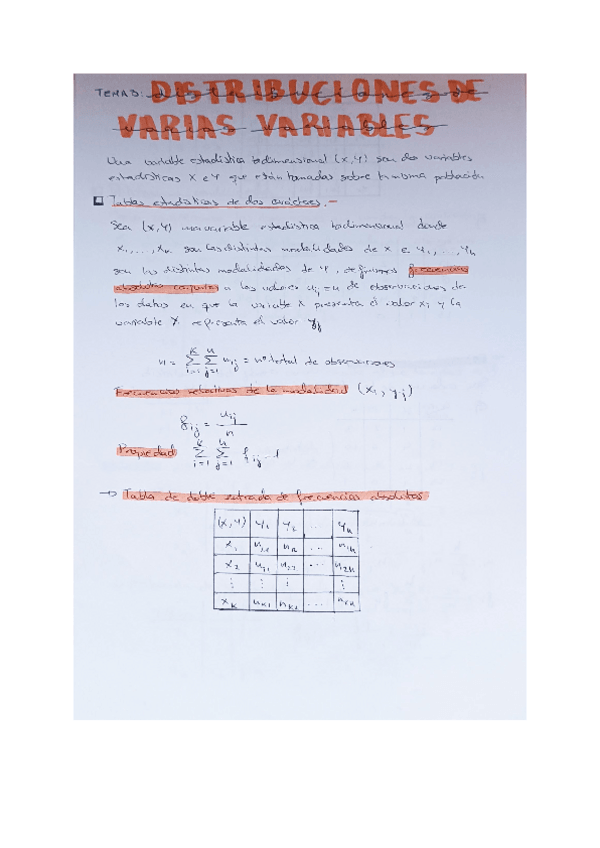 TEMA 3: DISTRIBUCIONES DE
VARIAS VARIABLES
Una variable estadística bidimensional (X,Y) son dos variables
estadísticas X e Y que están tomadas sobre la misma población
Tablas estadísticas de dos caracteres.-
Sea (X,Y) una variable estadística bidimensional donde
x₁,...,xₖ son las distintas modalidades de X e Y₁,...,Yₕ
son las distintas modalidades de Y, definimos frecuencias
absolutas conjuntas a los valores nᵢⱼ = nº de observaciones de
los datos en que la variable X presenta el valor xᵢ y la
variable Y representa el valor yⱼ
n = Σᵢ₌₁ᵏ Σⱼ₌₁ʰ nᵢⱼ = nº total de observaciones
Frecuencias relativas de la modalidad (xᵢ, yⱼ)
fᵢⱼ = nᵢⱼ / n
Propiedad Σᵢ₌₁ᵏ Σⱼ₌₁ʰ fᵢⱼ = 1
→ Tabla de doble entrada de frecuencias absolutas
(X,Y) y₁ y₂ ... yₕ
x₁ n₁₁ n₁₂ ... n₁ₕ
x₂ n₂₁ n₂₂ ... n₂ₕ
⋮ ⋮ ⋮ ⋮
xₖ nₖ₁ nₖ₂ ... nₖₕ